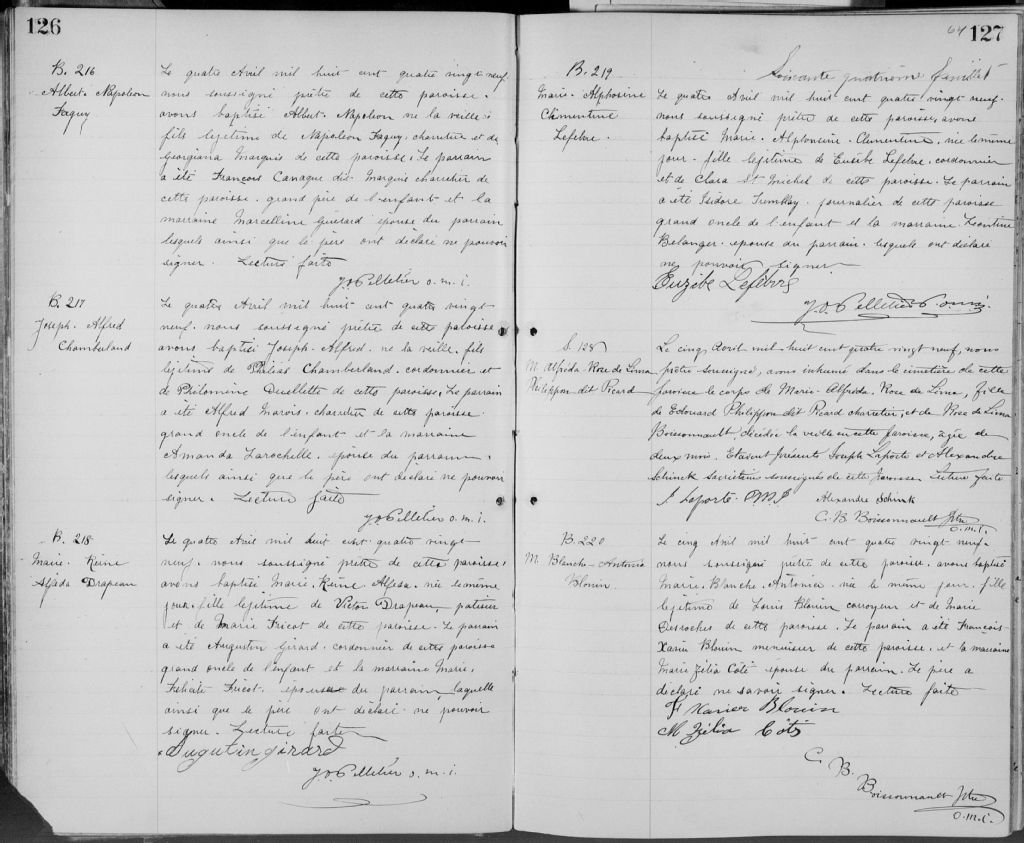 126
B. 216
Albert. Napoleon
Faguy
Le quatre Avril mil huit cent quatre vingt neuf.
nous soussigné prêtre de cette paroisse.
avons baptisé Albert. Napoleon né la veille.
fils legitime de Napoleon Faguy. charretier et de
Georgiana Marquis de cette paroisse. Le parrain
a été François Canaque dit Marquis charretier de
cette paroisse. grand père de l'enfant et la
marraine Marcelline Guérard épouse du parrain
lesquels ainsi que le père ont déclaré ne pouvoir
signer. Lecture faite
J. O. Pelletier o. m. i.
B. 217
Joseph. Alfred
Chamberland
Le quatre Avril mil huit cent quatre vingt
neuf. nous soussigné prêtre de cette paroisse
avons baptisé Joseph. Alfred. né la veille. fils
legitime de Philias Chamberland. cordonnier et
de Philomène Ouellette de cette paroisse. Le parrain
a été Alfred Marois. charretier de cette paroisse
grand oncle de l'enfant et la marraine
Amanda Larochelle. épouse du parrain.
lesquels ainsi que le père ont déclaré ne pouvoir
signer. Lecture faite
J. O. Pelletier o. m. i.
B. 218
Marie. Reine
Alfeda Drapeau
Le quatre Avril mil huit cent quatre vingt
neuf. nous soussigné prêtre de cette paroisse
avons baptisé Marie. Reine Alfeda. née le même
jour. fille legitime de Victor Drapeau, patissier
et de Marie Fricot de cette paroisse. Le parrain
a été Augustin Girard. cordonnier de cette paroisse
grand oncle de l'enfant et la marraine Marie.
Felicité Fricot. épouse du parrain, laquelle
ainsi que le père ont déclaré ne pouvoir
signer. Lecture faite
Augustin Girard
J. O. Pelletier o. m. i.
64 127
Soixante quatrième feuillet
B. 219
Marie. Alphonsine
Clémentine
Lefebvre.
Le quatre Avril mil huit cent quatre vingt neuf.
nous soussigné prêtre de cette paroisse, avons
baptisé Marie. Alphonsine. Clementine, née le même
jour. fille legitime de Eusèbe Lefebvre. cordonnier
et de Clara St Michel de cette paroisse. Le parrain
a été Isidore Tremblay. journalier de cette paroisse
grand oncle de l'enfant et la marraine Leontine
Belanger. épouse du parrain. lesquels ont déclaré
ne pouvoir signer
Euzèbe Lefebvre
J. O. Pelletier P. o.m.i.
S. 128
M. Alfréda. Rose de Lima
Philippon dit Picard
Le cinq Avril mil huit cent quatre vingt neuf, nous
prêtre soussigné, avons inhumé dans le cimetière de cette
paroisse le corps de Marie. Alfréda. Rose de Lima, fille
de Edouard Philippon dit Picard charretier, et de Rose de Lima
Boissonnault, décédée la veille en cette paroisse, agée de
deux mois. Etaient présents Joseph Laporte et Alexandre
Schinck sacristains soussignés de cette paroisse. Lecture faite
J. Laporte. O.M.I
Alexandre Schink
C. B. Boissonnault Ptre
O.m.i.
B. 220
M. Blanche-Antonia
Blouin
Le cinq Avril mil huit cent quatre vingt neuf.
nous soussigné prêtre de cette paroisse. avons baptisé
Marie. Blanche Antonia. née le même jour. fille
legitime de Louis Blouin corroyeur et de Marie
Desroches de cette paroisse. Le parrain a été François-
Xavier Blouin menuisier de cette paroisse. et la marraine
Marie Zélia Coté épouse du parrain. Le père a
déclaré ne savoir signer. Lecture faite
F. Xavier Blouin
M Zélia Côté
C. B. Boissonnault Ptre
O.m.i.